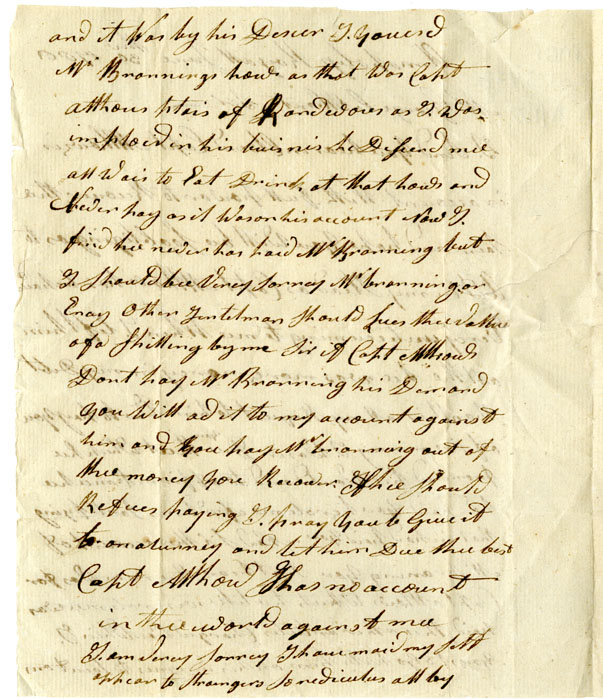 and it Was by his Desier I Youesd
Mr Brannings hows as that Was Capt
atthous plais of Randevoues as I Was
imploid in his buisnis he Disierd mee
all Wais to Eat Drink at that hows and
Never pay as it Was on his account Now I
find hee never has paid Mr Branning but
I Should bee Verey sorrey Mr branning or
Eney Other Jentelman Should Lues thee Vallue
of a Shilling by me Sir if Capt Atthows
Dont pay Mr Branning his Demand
You Will ad it to my account against
him and You pay Mr branning out of
thee money You Recover If hee Should
Refues paying I pray You to Give it
to an aturney and let him Due thee best
Capt Atthows has no account
in thee world against mee
I am Verey sorrey I have maid my self
appear to strangers so rediculus all by